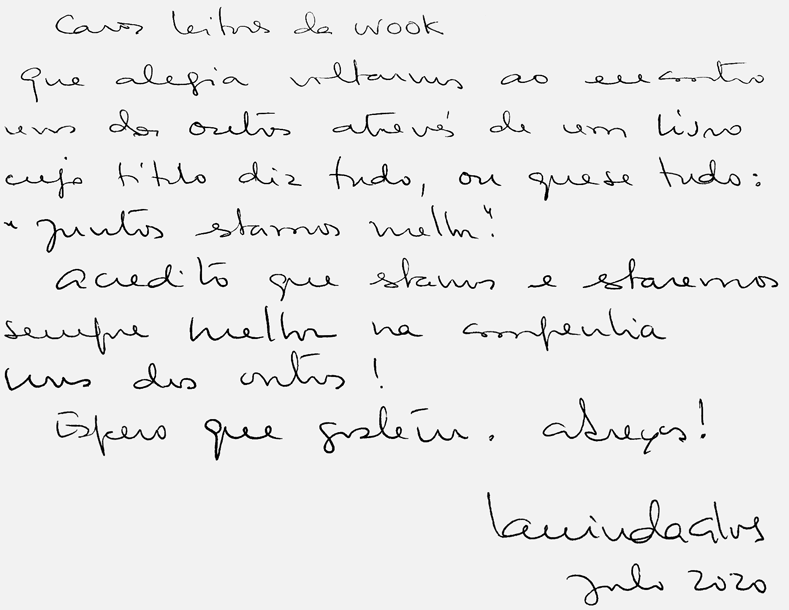 Caros leitores da WOOK
Que alegria voltarmos ao encontro
uns dos outros através de um livro
cujo título diz tudo, ou quase tudo:
"Juntos estamos melhor".
Acredito que estamos e estaremos
sempre melhor na companhia
uns dos outros!
Espero que gostem. Abraços!
Laurinda Alves
Julho 2020